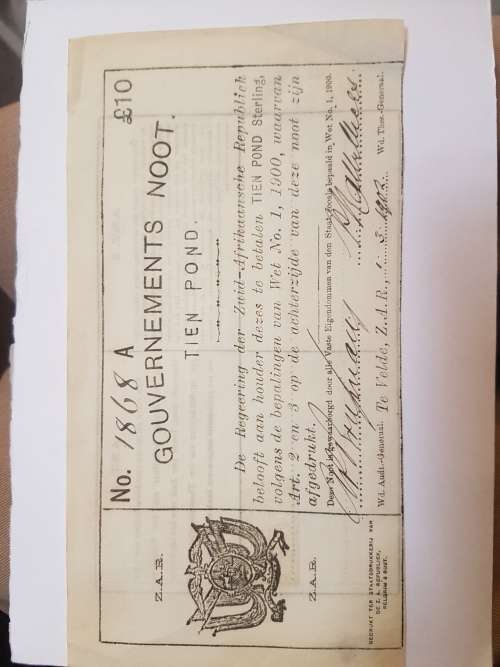 No. 1868 A £10
GOUVERNEMENTS NOOT.
TIEN POND.
De Regeering der Zuid-Afrikaansche Republiek
belooft aan houder dezes te betalen TIEN POND Sterling,
volgens de bepalingen van Wet No. 1, 1900, waarvan
Art. 2 en 3 op de achterzijde van deze noot zijn
afgedrukt.
Deze Noot is gewaarborgd door alle Vaste Eigendommen van den Staat, zooals bepaald in Wet No. 1, 1900.
Wd. Audt.-Generaal. Te Velde, Z.A.R., 1. 3. 1902. Wd. Thes.-Generaal.
Z.A.R.
Z.A.R.
GEDRUKT TER STAATSDRUKKERIJ VAN
DE Z. A. REPUBLIEK,
PELGRIM S RUST.